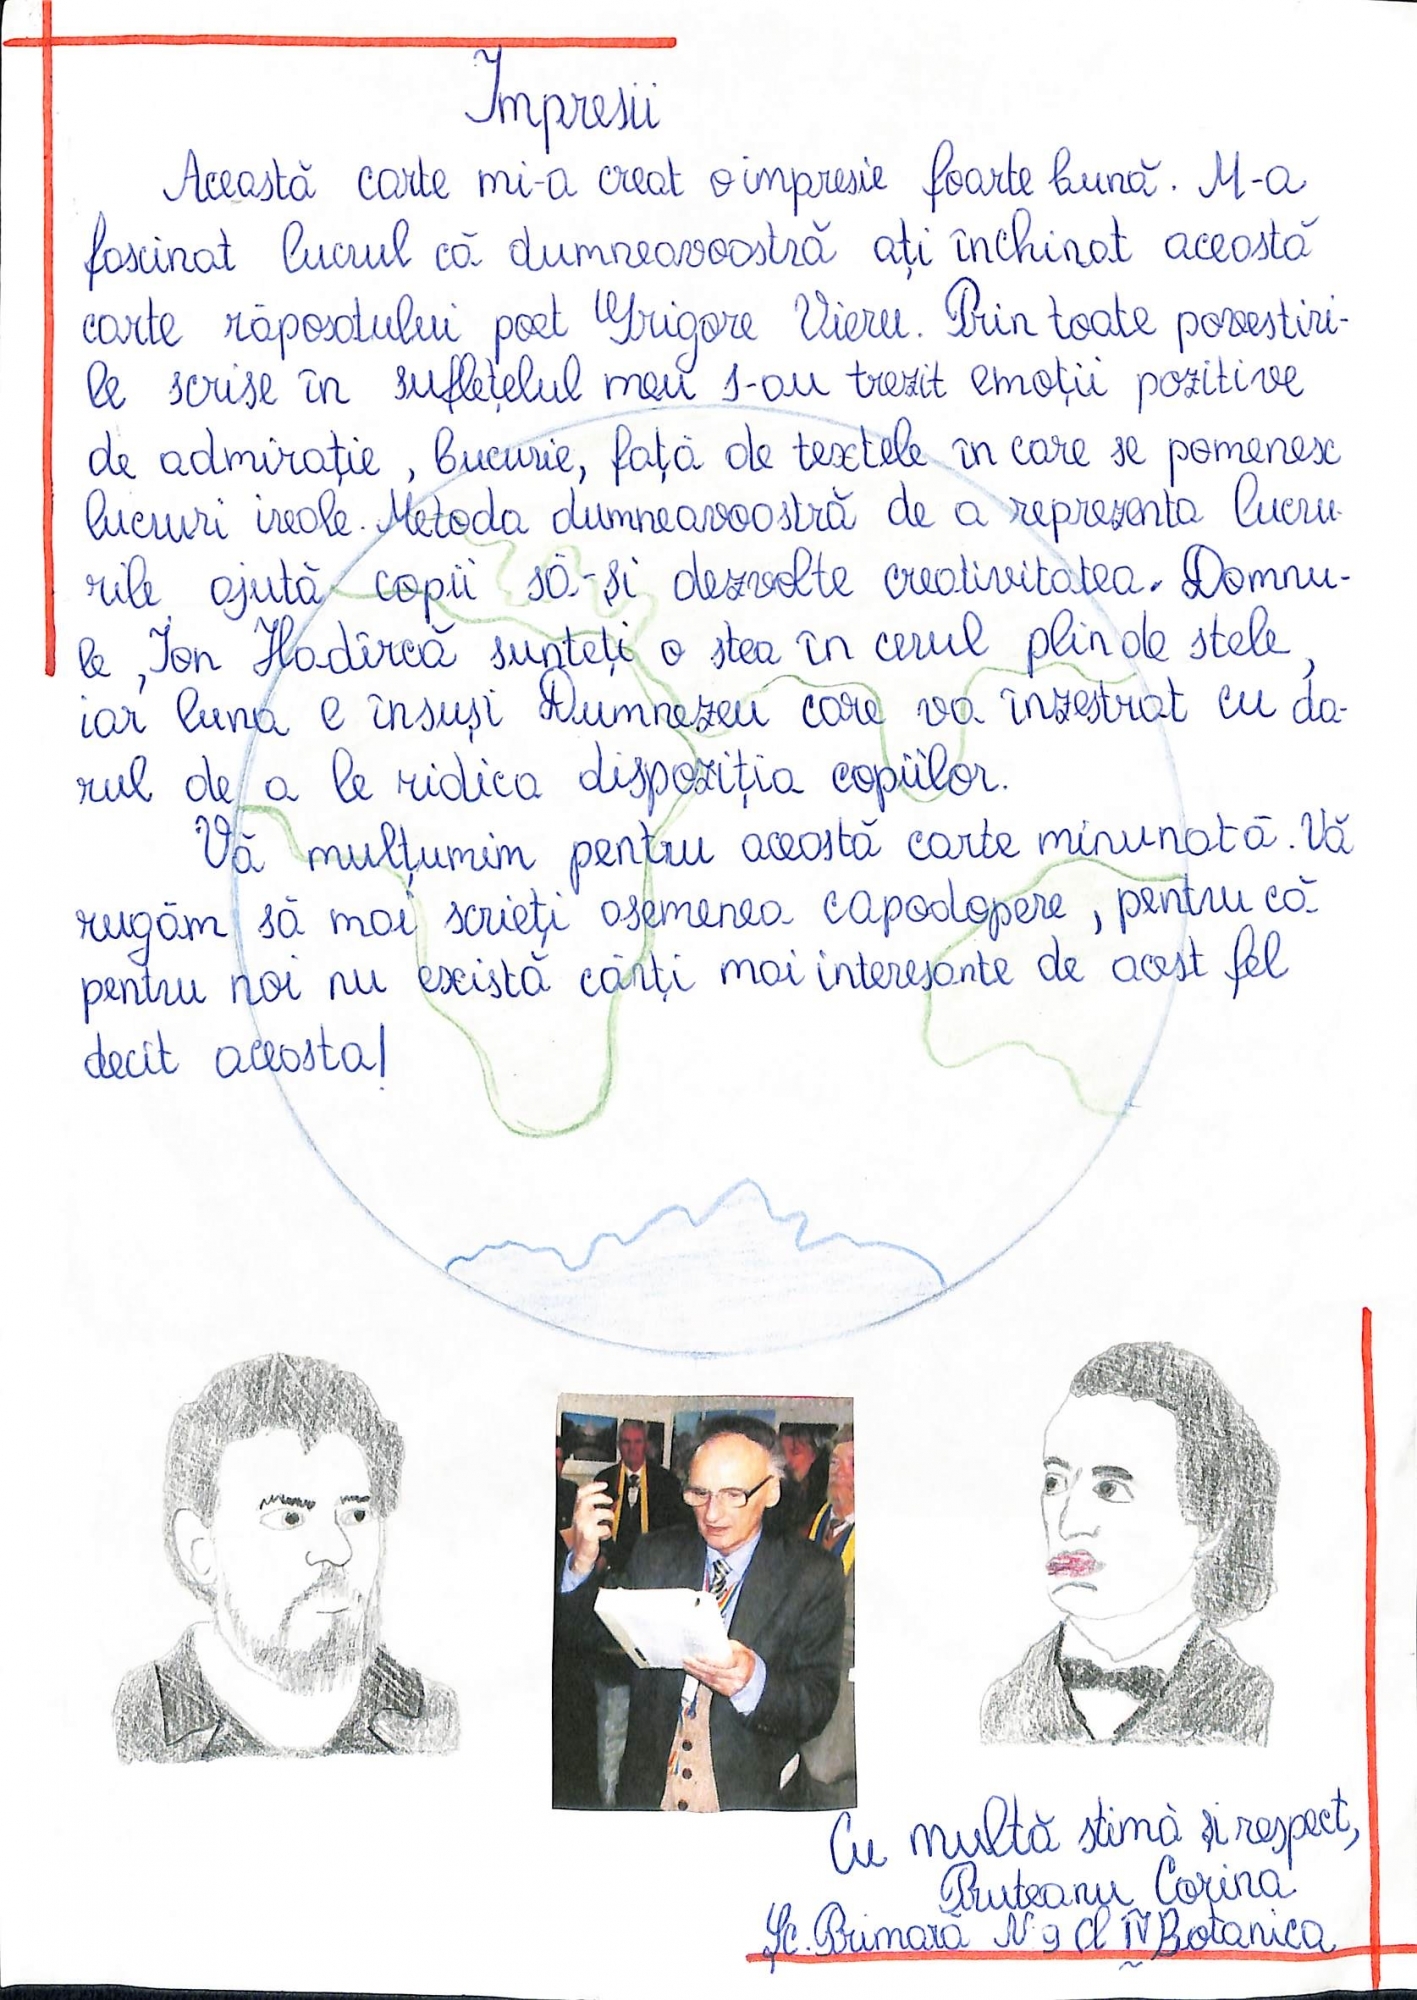 Impresii
Această carte mi-a creat o impresie foarte bună. M-a
fascinat lucrul că dumneavoastră ați închinat această
carte răposatului poet Grigore Vieru. Prin toate povestiri-
le scrise în suflețelul meu s-au trezit emoții pozitive
de admirație, bucurie, față de textele în care se pomenesc
lucruri ireale. Metoda dumneavoastră de a reprezenta lucru-
rile ajută copii să-și dezvolte creativitatea. Domnu-
le, Ion Hadîrcă sunteți o stea în cerul plin de stele,
iar luna e însuși Dumnezeu care va înzestrat cu da-
rul de a le ridica dispoziția copiilor.
Vă mulțumim pentru această carte minunată. Vă
rugăm să mai scrieți asemenea capodopere, pentru că
pentru noi nu există cărți mai interesante de acest fel
decît aceasta!
Cu multă stimă și respect,
Bruteanu Corina
Șc. Primară N 9 Cl IV Botanica